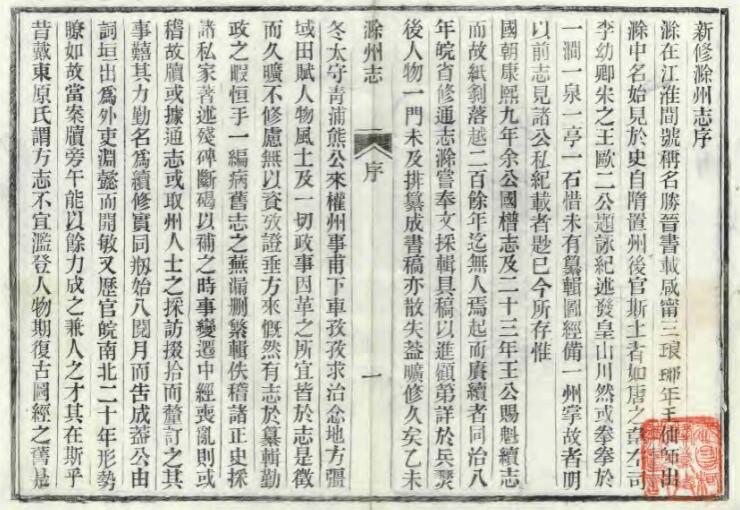 新修滁州志序
滁在江淮間號稱名勝晉書載咸甯三琅琊年王伷師出
滁中名始見於史自隋置州後官斯土者如唐之韋左司
李幼卿朱之王歐二公題詠紀述發皇山川然或拳拳於
一澗一泉一亭一石惜未有纂輯圖經備一州掌故者明
以前志見諸公私紀載者尠已今所存惟
國朝康熙九年余公國㯳志及二十三年王公賜魁續志
而故紙剝落越二百餘年迄無人焉起而賡續者同治八
年皖省修通志滁嘗奉文採輯具稿以進顧第詳於兵燹
後人物一門未及排纂成書稿亦散失蓋曠修久矣乙未
滁州志
序
一
冬太守青浦熊公來權州事甫下車孜孜求治念地方疆
域田賦人物風土及一切政事因革之所宜皆於志是徵
而久曠不修慮無以資攷證垂方來慨然有志於纂輯勤
政之暇恒手一編病舊志之蕪漏删繁輯佚稽諸正史採
諸私家著述殘碑斷碣以補之時事變遷中經喪亂則或
稽故牘或據通志或取州人士之採訪掇拾而釐訂之其
事囍其力勤名爲續修實同剏始八閱月而告成蓋公由
詞垣出爲外吏淵懿而開敏又歷官皖南北二十年形勢
瞭如故當案牘旁午能以餘力成之兼人之才其在斯乎
昔戴東原氏謂方志不宜濫登人物期復古圖經之舊是